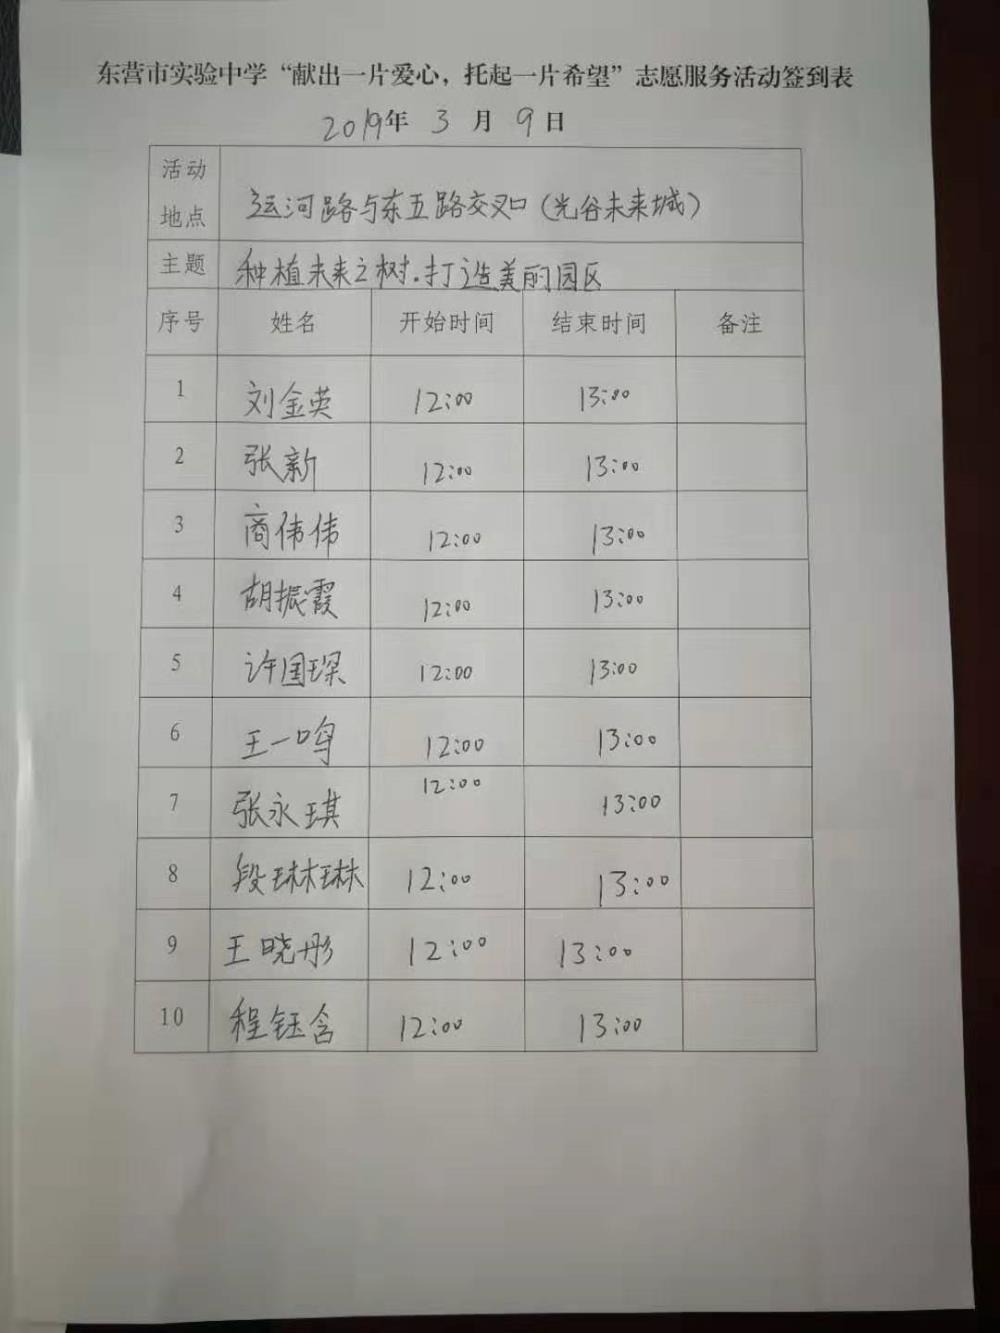 东营市实验中学“献出一片爱心，托起一片希望”志愿服务活动签到表
2019年 3 月 9 日
活动地点 运河路与东五路交叉口(光谷未来城)
主题 种植未来之树.打造美丽园区
序号 姓名 开始时间 结束时间 备注
1 刘金英 12:00 13:00
2 张新 12:00 13:00
3 商伟伟 12:00 13:00
4 胡振霞 12:00 13:00
5 许国琛 12:00 13:00
6 王一鸣 12:00 13:00
7 张永琪 12:00 13:00
8 段琳琳 12:00 13:00
9 王晓彤 12:00 13:00
10 程钰含 12:00 13:00